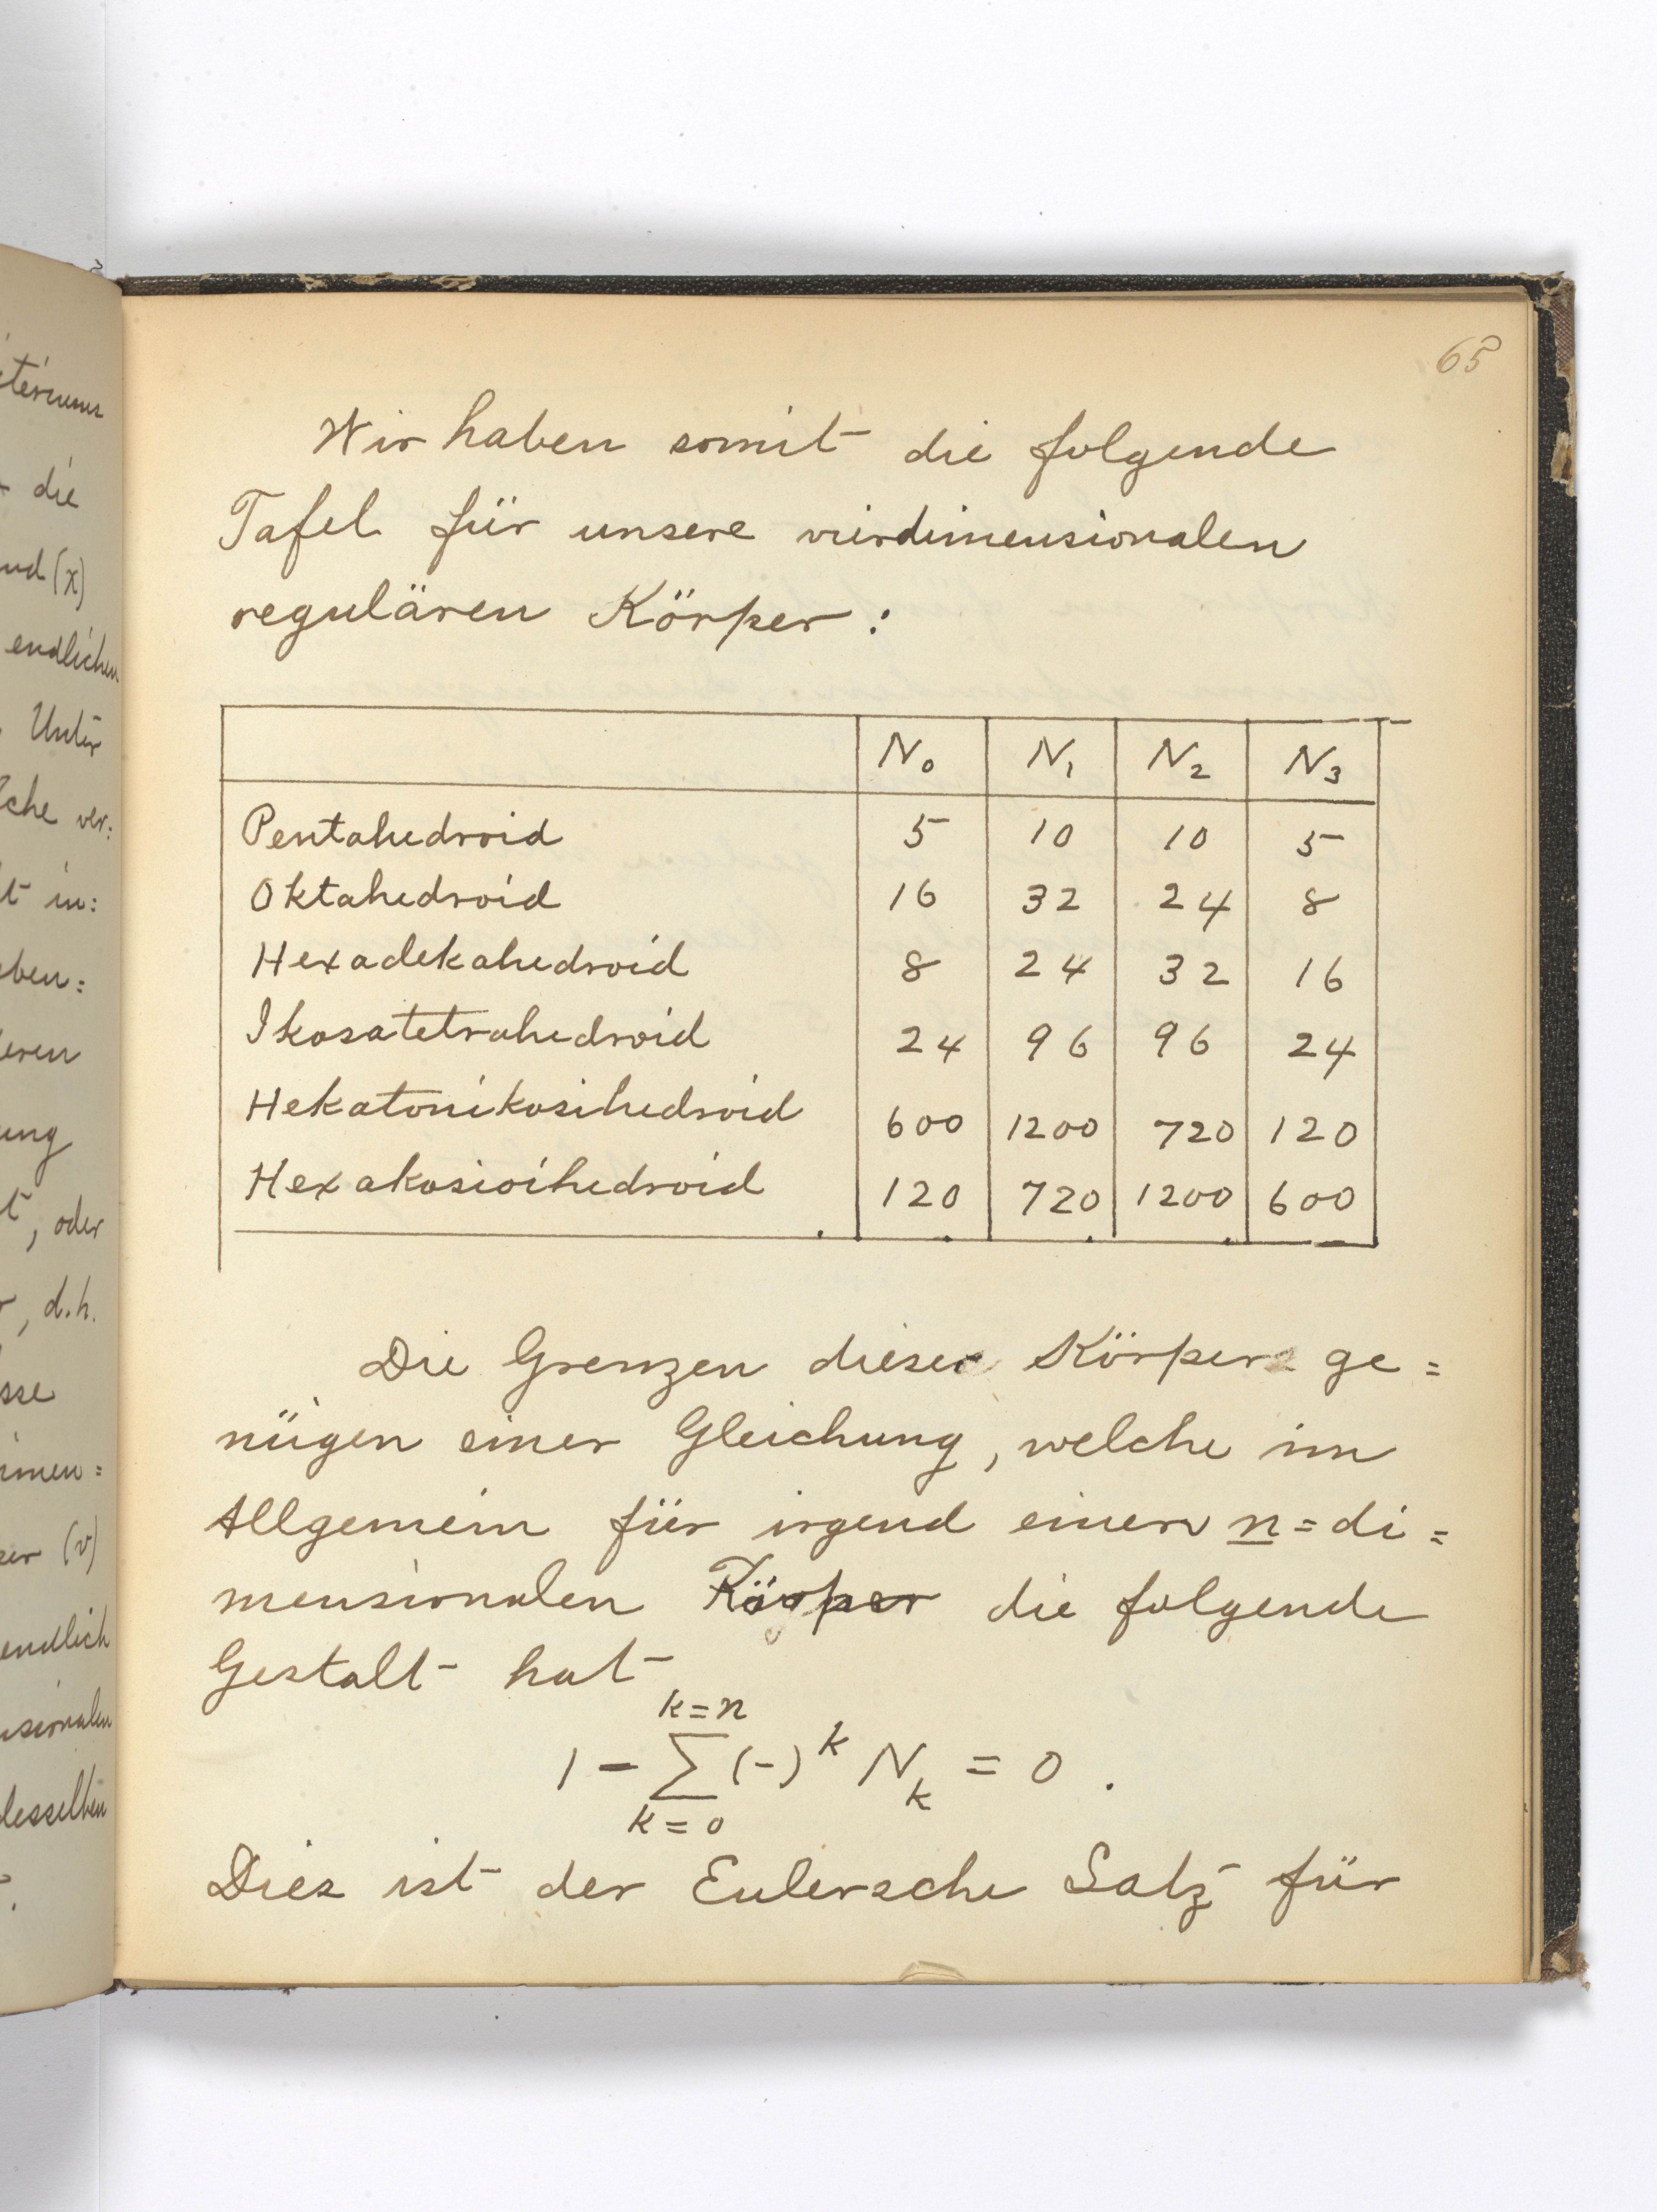 65
Wir haben somit die folgende
Tafel für unsere vierdimensionalen
regulären Körper:
N₀ N₁ N₂ N₃
Pentahedroid 5 10 10 5
Oktahedroid 16 32 24 8
Hexadekahedroid 8 24 32 16
Ikosatetrahedroid 24 96 96 24
Hekatonikosihedroid 600 1200 720 120
Hexakosioihedroid 120 720 1200 600
Die Grenzen dieser Körper ge=
nügen einer Gleichung, welche im
Allgemein für irgend einen n=di=
mensionalen Körper die folgende
Gestalt hat
k=n
1 - ∑ (-)ᵏ Nₖ = 0 .
k=0
Dies ist der Eulersche Satz für
die
und (x)
endlichen
Unter
ver:
t in:
eben=
eren
ung
t, oder
, d.h.
sse
imen=
(v)
endlich
sionalen
desselben